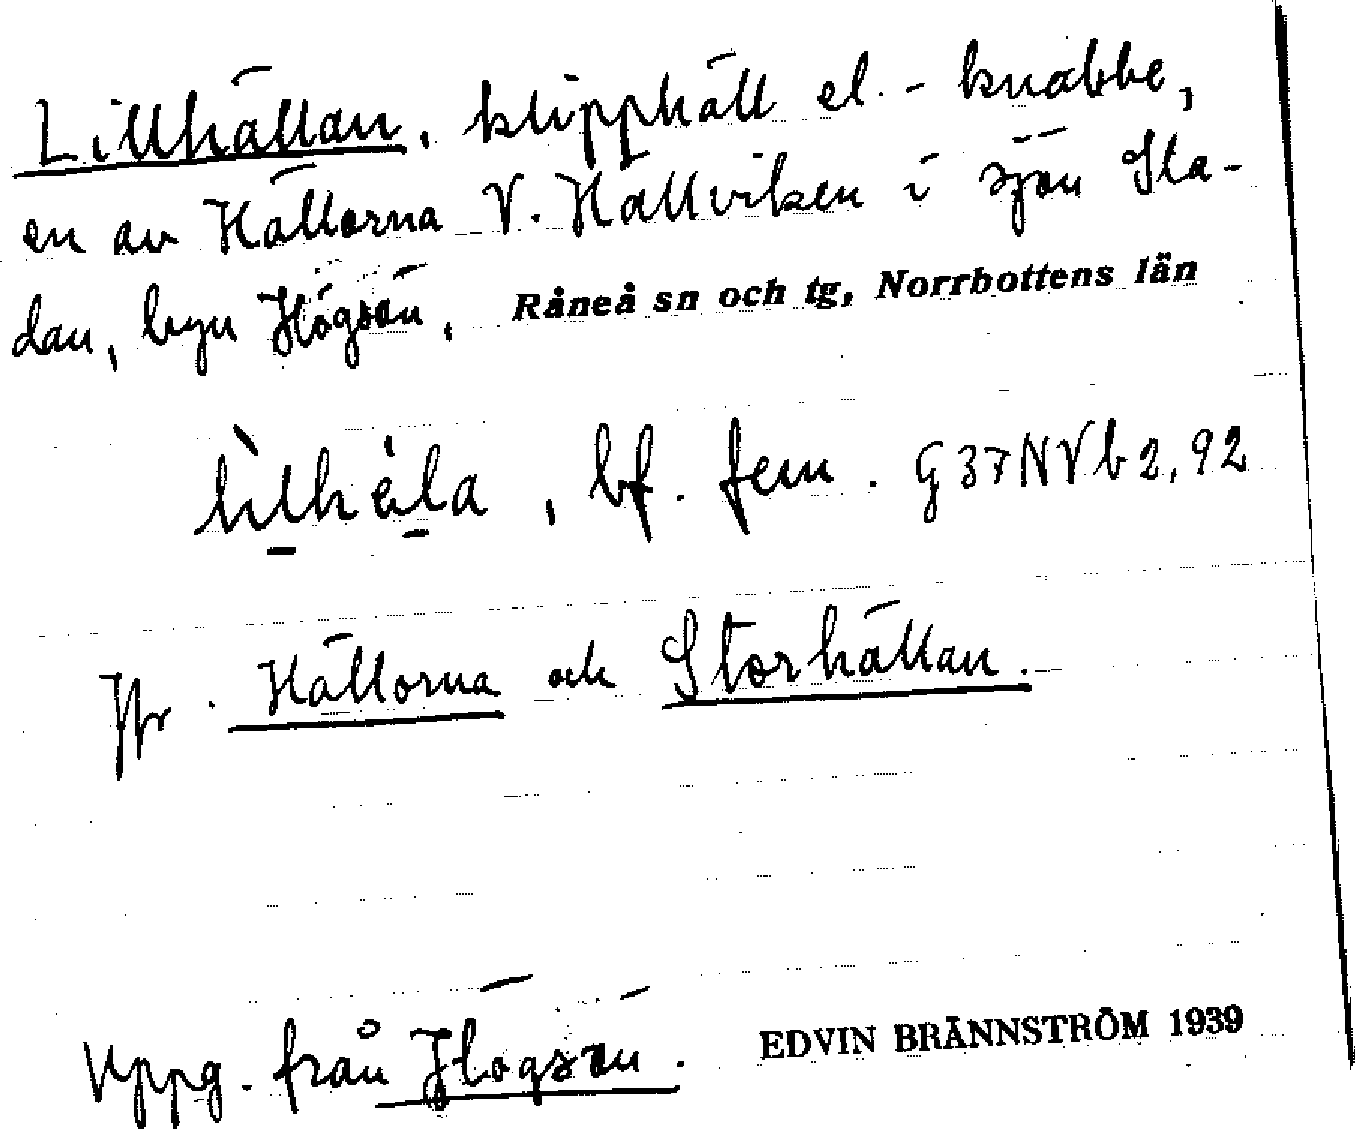 Lillhällan, klipphäll el. - knabbe,
en av Hällorna V. Hällviken i sjön Sla-
dan, byn Högsön, Råneå sn och tg, Norrbottens län
, bf. fem. G37NVb2,92
Jfr. Hällorna och Storhällan.
Uppg. från Högsön. EDVIN BRÄNNSTRÖM 1939